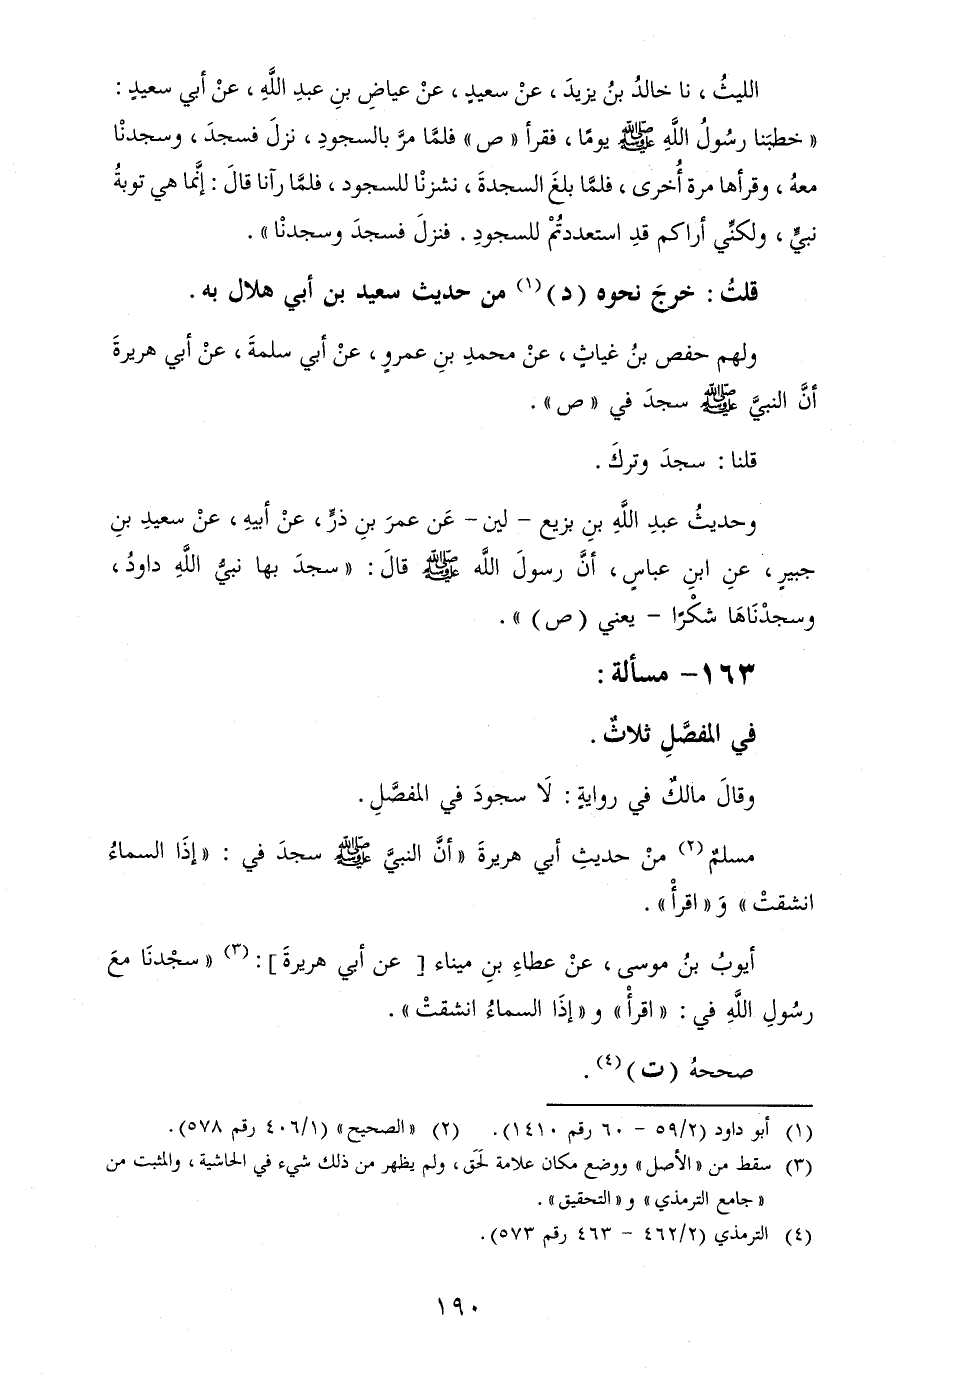 الليثُ ، نا خالدُ بنُ يزيدَ ، عنْ سعيدٍ ، عنْ عياضِ بنِ عبدِ اللَّهِ ، عنْ أبي سعيدٍ :
« خطبَنا رسُولُ اللَّهِ ﷺ يومًا ، فقرأ « ص » فلمَّا مرَّ بالسجودِ ، نزلَ فسجدَ ، وسجدنْا
معهُ ، وقرأها مرة أُخرى ، فلمَّا بلغَ السجدةَ ، نشزنْا للسجود ، فلمَّا رآنا قالَ : إنَّما هي توبةُ
نبيٍّ ، ولكنِّي أراكم قدِ استعددتُمْ للسجودِ . فنزلَ فسجدَ وسجدنْا » .
قلتُ : خرجَ نحوه ( د )(١) من حديث سعيد بن أبي هلال به .
ولهم حفص بنُ غياثٍ ، عنْ محمدِ بنِ عمروٍ ، عنْ أبي سلمةَ ، عنْ أبي هريرةَ
أنَّ النبيَّ ﷺ سجدَ في « ص » .
قلنا : سجدَ وتركَ .
وحديثُ عبدِ اللَّهِ بنِ بزيع – لين – عَن عمرَ بنِ ذرٍّ ، عنْ أبيهِ ، عنْ سعيدِ بنِ
جبيرٍ ، عنِ ابنِ عباسٍ ، أنَّ رسولَ الله ﷺ قالَ : « سجدَ بها نبيُّ اللَّهِ داودُ ،
وسجدْنَاهَا شكْرًا – يعني ( ص ) » .
١٦٣ – مسألة :
في المفصَّلِ ثلاثٌ .
وقالَ مالكٌ في روايةٍ : لَا سجودَ في المفصَّلِ .
مسلمٌ(٢) منْ حديثِ أبي هريرةَ « أنَّ النبيَّ ﷺ سجدَ في : « إذَا السماءُ
انشقتْ » وَ « اقرأْ » .
أيوبُ بنُ موسى ، عنْ عطاءِ بنِ ميناء [ عن أبي هريرةَ ] :(٣) « سجْدنَا معَ
رسُولِ اللَّهِ في : « اقرأْ » و « إذَا السماءُ انشقتْ » .
صححهُ ( ت )(٤) .
(١) أبو داود (٥٩/٢ – ٦٠ رقم ١٤١٠). (٢) «الصحيح» (٤٠٦/١ رقم ٥٧٨).
(٣) سقط من «الأصل» ووضع مكان علامة لَحَق، ولم يظهر من ذلك شيء في الحاشية ، والمثبت من
«جامع الترمذي» و«التحقيق».
(٤) الترمذي (٤٦٢/٢ – ٤٦٣ رقم ٥٧٣).
١٩٠